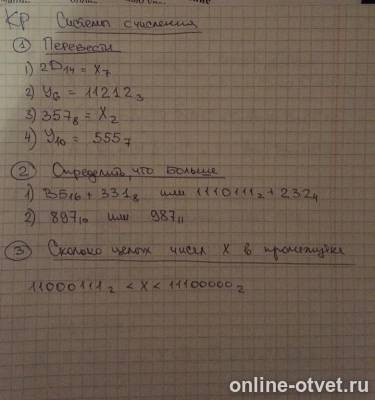 КР Системы счисления
① Перевести
1) 2D₁₄ = X₇
2) У₆ = 11212₃
3) 357₈ = X₂
4) У₁₀ = 555₇
② Определить, что больше
1) В5₁₆ + 331₈ или 1110111₂ + 232₄
2) 897₁₀ или 987₁₁
③ Сколько целых чисел X в промежутке
11000111₂ < X < 11100000₂
online-otvet.ru